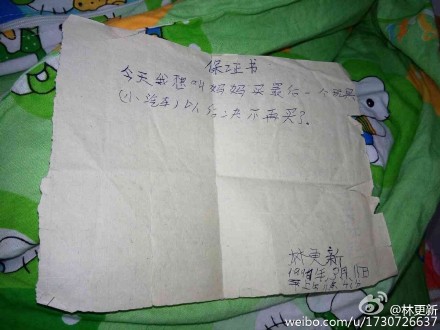 保证书
今天我想叫妈妈买最后一个玩具
(小汽车)以后决不再买了。
林更新
@林更新
weibo.com/u/1730726637